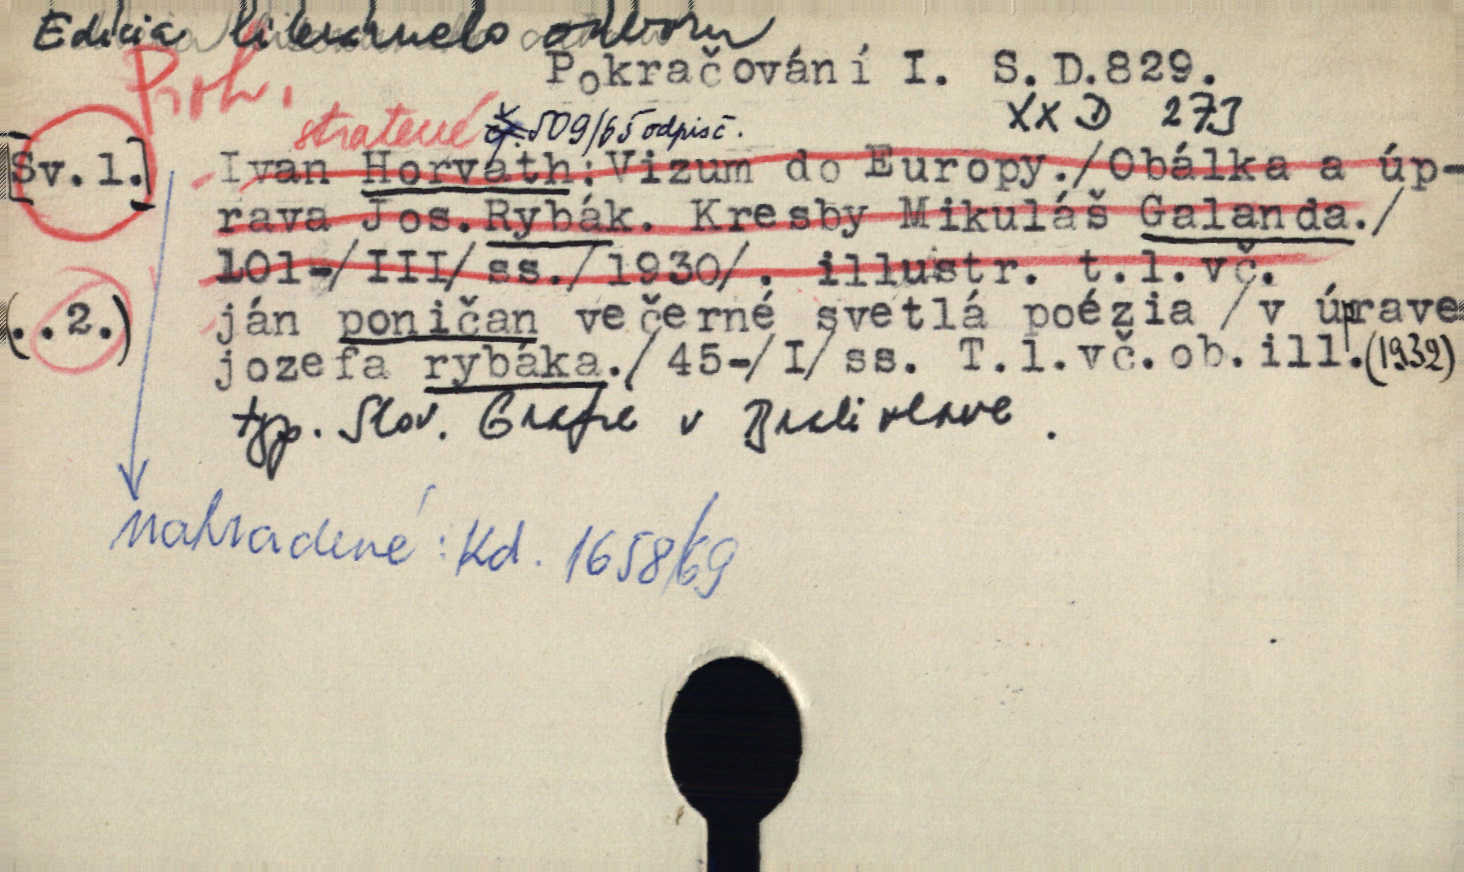 Edicia literárneho odboru
Pokračování I. S.D.829.
Roh. XX D 273
stratené č. 509/65 odpisč.
[Sv.1.] Ivan Horváth:Vizum do Europy./Obálka a úp-
rava Jos.Rybák. Kresby Mikuláš Galanda./
101-/III/ss./1930/. illustr. t.l.vč.
(..2.) ján poničan večerné svetlá poézia /v úprave
jozefa rybáka./45-/I/ss. T.l.vč.ob.ill.(1932)
typ. Slov. Grafie v Bratislave.
nahradené: Kd. 1658/69